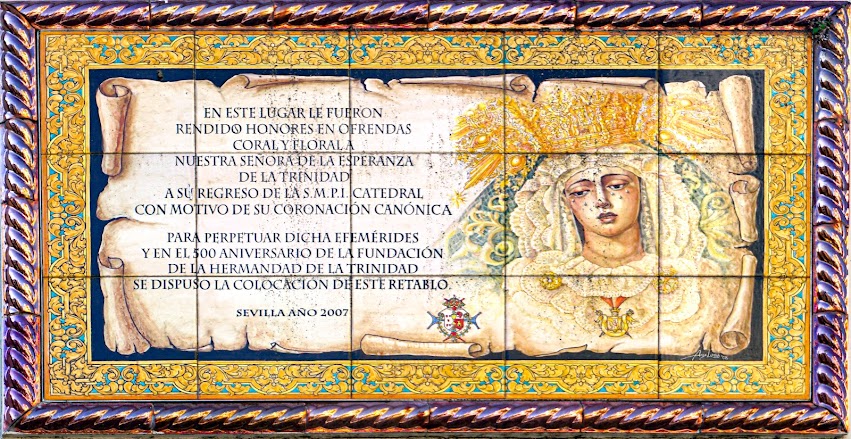 EN ESTE LUGAR LE FUERON
RENDIDO HONORES EN OFRENDAS
CORAL Y FLORAL A
NUESTRA SEÑORA DE LA ESPERANZA
DE LA TRINIDAD
A SU REGRESO DE LA S.M.P.I. CATEDRAL
CON MOTIVO DE SU CORONACIÓN CANÓNICA
PARA PERPETUAR DICHA EFEMÉRIDES
Y EN EL 500 ANIVERSARIO DE LA FUNDACIÓN
DE LA HERMANDAD DE LA TRINIDAD
SE DISPUSO LA COLOCACIÓN DE ESTE RETABLO.
SEVILLA AÑO 2007